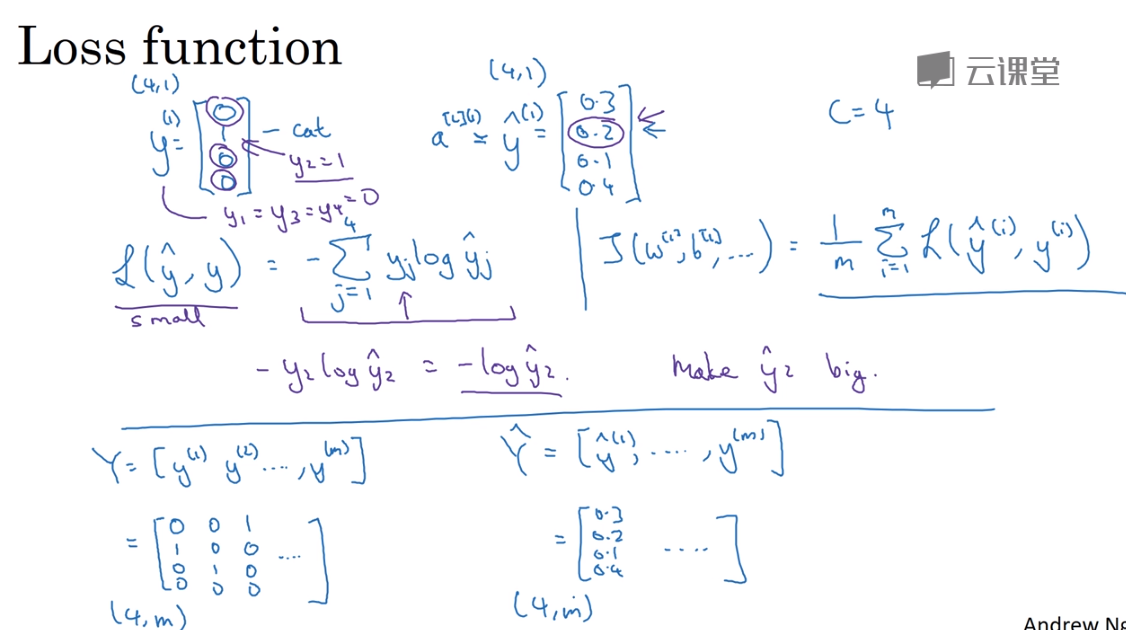 Loss function
云课堂
(4,1)
y⁽¹⁾ = [0 1 0 0] - cat
y₂=1
y₁ = y₃ = y₄ = 0
(4,1)
a^{[L](1)} = ŷ⁽¹⁾ = [0.3 0.2 0.1 0.4]
C = 4
L(ŷ, y) = - Σ_{j=1}^{4} yⱼ log ŷⱼ
small
J(w^{[1]}, b^{[1]}, ....) = 1/m Σ_{i=1}^{m} L(ŷ^{(i)}, y^{(i)})
- y₂ log ŷ₂ = - log ŷ₂. Make ŷ₂ big.
Y = [y⁽¹⁾ y⁽²⁾ ...., y⁽ᵐ⁾]
= [0 0 1
1 0 0 ....
0 1 0
0 0 0]
(4,m)
Ŷ = [ŷ⁽¹⁾, ...., y⁽ᵐ⁾]
= [0.3
0.2
0.1 ....
0.4]
(4,m)
Andrew Ng